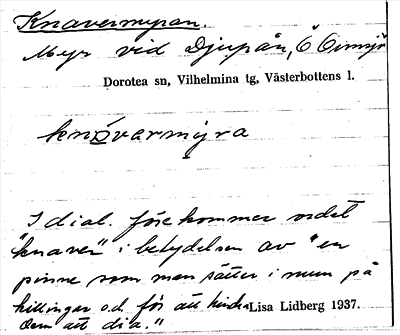 Knavermyran.
Myr vid Djupån, Ö Ormsjö
Dorotea sn, Vilhelmina tg, Västerbottens l.
knàvarmỵra
I dial. förekommer ordet
"knaver" i betydelsen av "en
pinne som man sätter i mun på
killingar o.d. för att hindra
Lisa Lidberg 1937.
dem att dia."